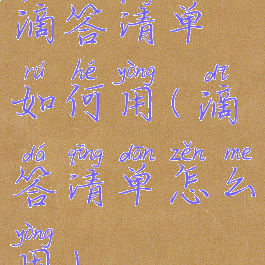 滴答清单
rú hé yòng dī
如何用(滴
dá qīng dān zěn me
答清单怎么
yòng
用)